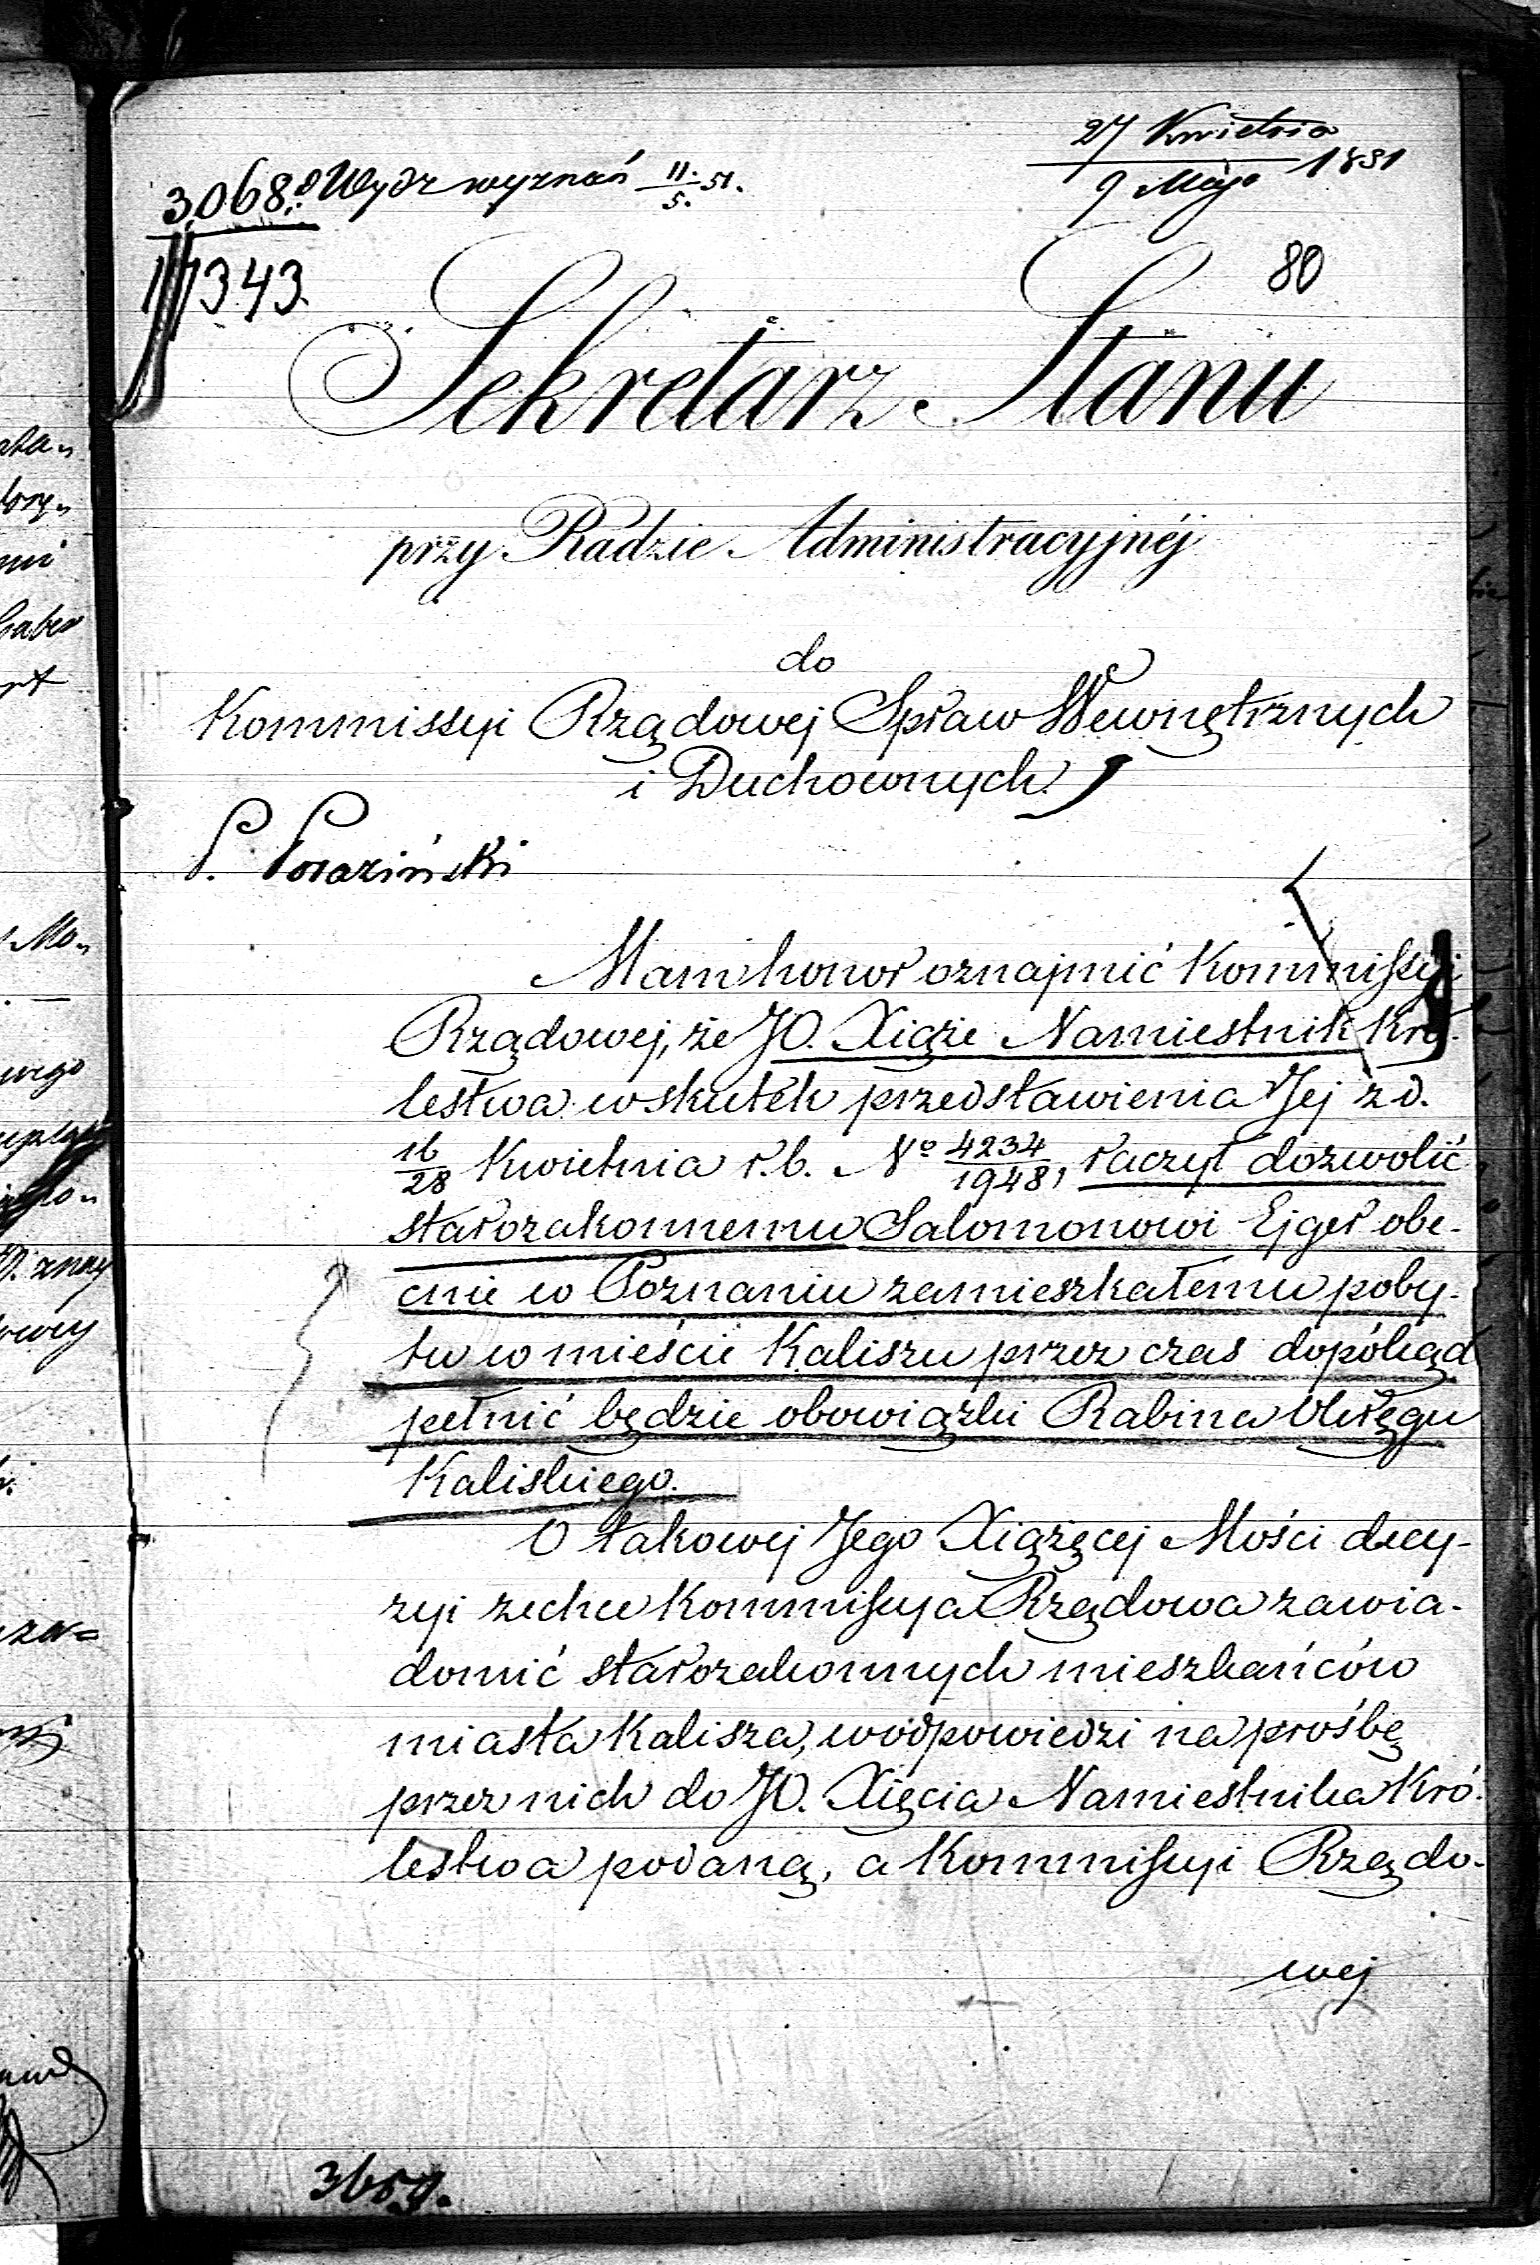 27 Kwietnia
9 Maja 1851
3,068. Wydz wyznań 11./5. 51.
343.
80
Sekretarz Stanu
przy Radzie Administracyjnéj
do
Kommissyi Rządowej Spraw Wewnętrznych
i Duchownych.
P.
Mam honor oznajmić Kommissyi
Rządowej, że JO. Xiąże Namiestnik Kró-
lestwa w skutek przedstawienia Jej z d.
16/28 Kwietnia r.b. No 4234/1948, raczył dozwolić
starozakonnemu Salomonowi Ejger obe-
cnie w Poznaniu zamieszkałemu poby-
tu w mieście Kaliszu przez czas dopókąd
pełnić będzie obowiązki Rabina Okręgu
Kaliskiego.
O takowej Jego Xiążęcej Mości decy-
zyi zechce Kommissya Rządowa zawia-
domić starozakonnych mieszkańców
miasta Kalisza, w odpowiedzi na prośbę
przez nich do JO. Xięcia Namiestnika Kró-
lestwa podaną, a Kommissyi Rządo-
wej